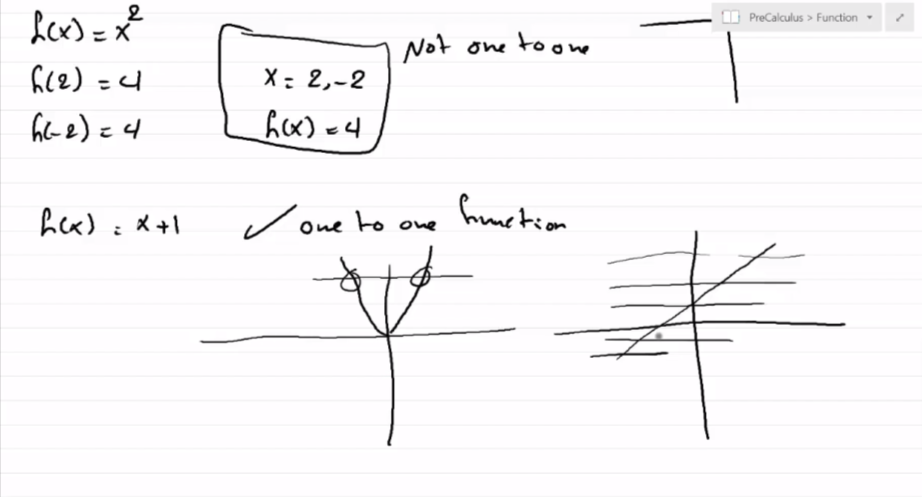 PreCalculus > Function
h(x) = x²
h(2) = 4
h(-2) = 4
x = 2, -2
h(x) = 4
Not one to one
h(x) = x+1
✓ one to one function